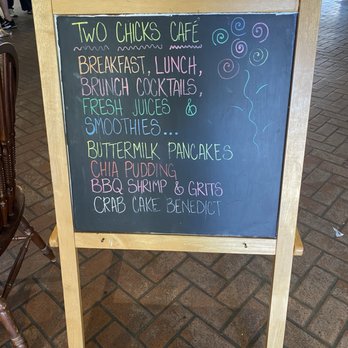 TWO CHICKS CAFÉ
BREAKFAST, LUNCH,
BRUNCH COCKTAILS,
FRESH JUICES &
SMOOTHIES...
BUTTERMILK PANCAKES
CHIA PUDDING
BBQ SHRIMP & GRITS
CRAB CAKE BENEDICT